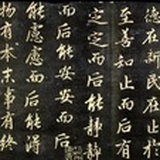 德在新民在止於
至善知止而后有
定定而后能靜靜
而后能安安而后
能慮慮而后能得
物有本末事有終